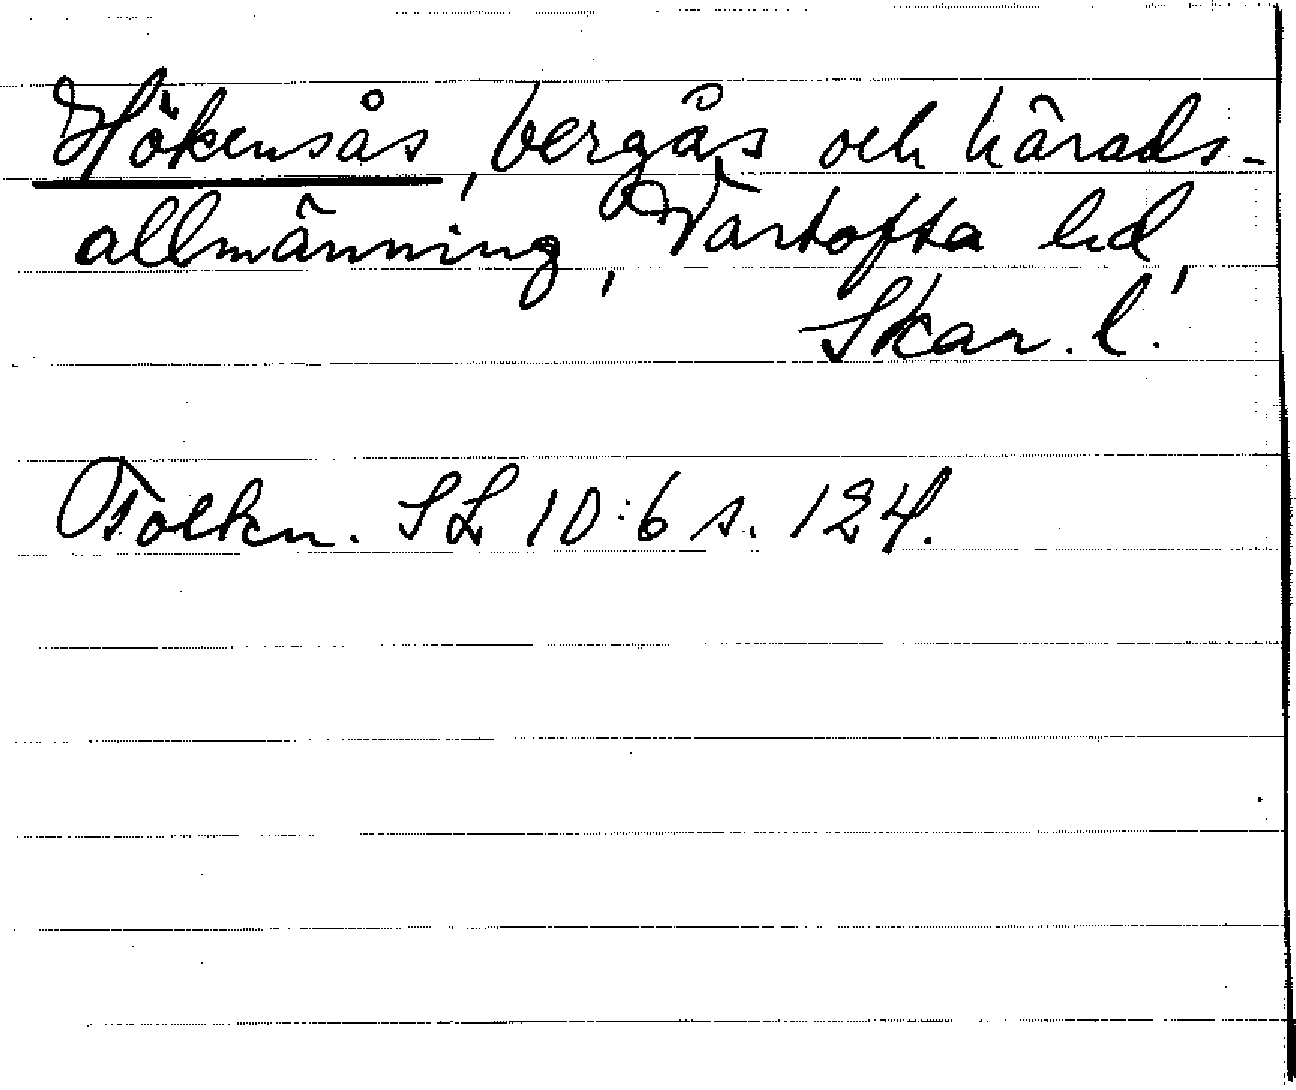 Hökensås, bergås och härads-
allmänning, Vartofta hd,
Skar. l.
Folkn. SL 10:6 s. 124.